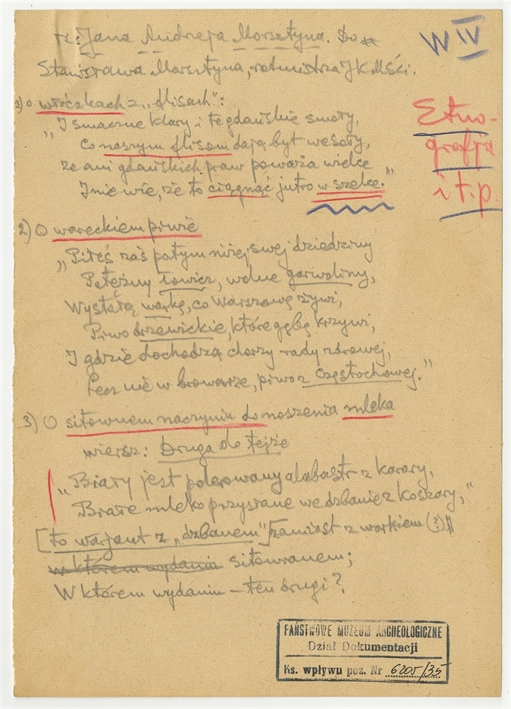 z: Jana Andrzeja Morsztyna. Do
W IV
Stanisława Morsztyna, rotmistrza JKMści.
1) o wróczkach z „flisach":
Etno-
grafja
i t.p.
„I smaczne klary i te gdańskie smoły,
Co naszym flisom dają byt wesoły,
że ani gdańskich praw poważa wielce
I nie wie, że to ciągnąć jutro w szelce."
2) O wareckiem piwie
„Piłeś zaś potym niżej swej dziedziny
Potężny Łowicz, wolne garwoliny,
Wystałą warkę, co Warszawę żywi,
Piwo brzewickie, które gębę krzywi,
I gdzie dochodzą chorzy rady zdrowej,
Lecz nie w browarze, piwo z Częstochowej."
3) O sitownem naczyniu do noszenia mleka
wiersz: Druga do tejże
„Biały jest polerowany alabastr z karary,
Białe mleko przysłane we dzbanie z koszary,"
[to warjant z „dzbanem" zamiast z workiem (?)]
w którem wydaniu sitowianem;
W którem wydaniu – ten drugi?
PAŃSTWOWE MUZEUM ARCHEOLOGICZNE
Dział Dokumentacji
Ks. wpływu poz. Nr 6205/35